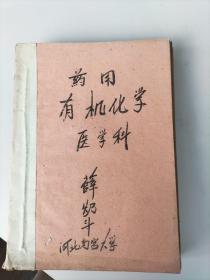 药用
有机化学
医学科
薛
斗
河北 大学